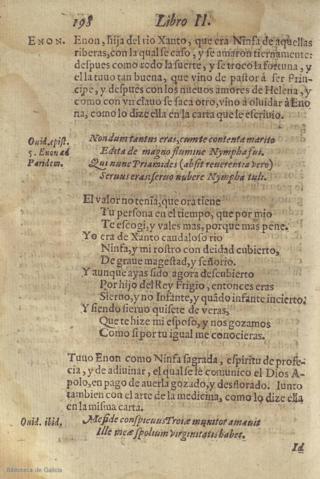 198 Libro II.
ENON. Enon, hija del rio Xanto, que era Ninfa de aquellas
riberas, con la qual se casò, y se amaron tiernamente:
despues como rodo la suerte, y se trocò la fortuna, y
ella tuuo tan buena, que vino de pastor à ser Prin-
cipe, y despues con los nueuos amores de Helena, y
como con vn clauo se saca otro, vino à oluidar à Eno
na, como lo dize ella en la carta que le escriuio.
Ouid. epist. Nondum tantus eras, cum te contenta marito
5. Enon ad Edita de magno flumine Nympha fui.
Paridem. Qui nunc Priamides (absit reuerentia vero)
Seruus eras: seruo nubere Nympha tuli.
El valor no tenia, que ora tiene
Tu persona en el tiempo, que por mio
Te escogi, y vales mas, porque mas pene.
Yo era de Xanto caudaloso rio
Ninfa, y mi rostro con deidad cubierto,
De graue magestad, y señorio.
Y aunque ayas sido agora descubierto
Por hijo del Rey Frigio, entonces eras
Sieruo, y no Infante, y quãdo infante incierto:
Y siendo sieruo quisete de veras,
Que te hize mi esposo, y nos gozamos
Como si por tu igual me conocieras.
Tuuo Enon como Ninfa sagrada, espiritu de profe-
cia, y de adiuinar, el qual se le comunicò el Dios A-
polo, en pago de auerla gozado, y desflorado. Iunto
tambien con el arte de la medicina, como lo dize ella
en la misma carta.
Ouid. ibid. Me fide conspicuus Troiæ munitor amauit
Ille meæ spolium virginitatis habet.
Id
Biblioteca de Galicia